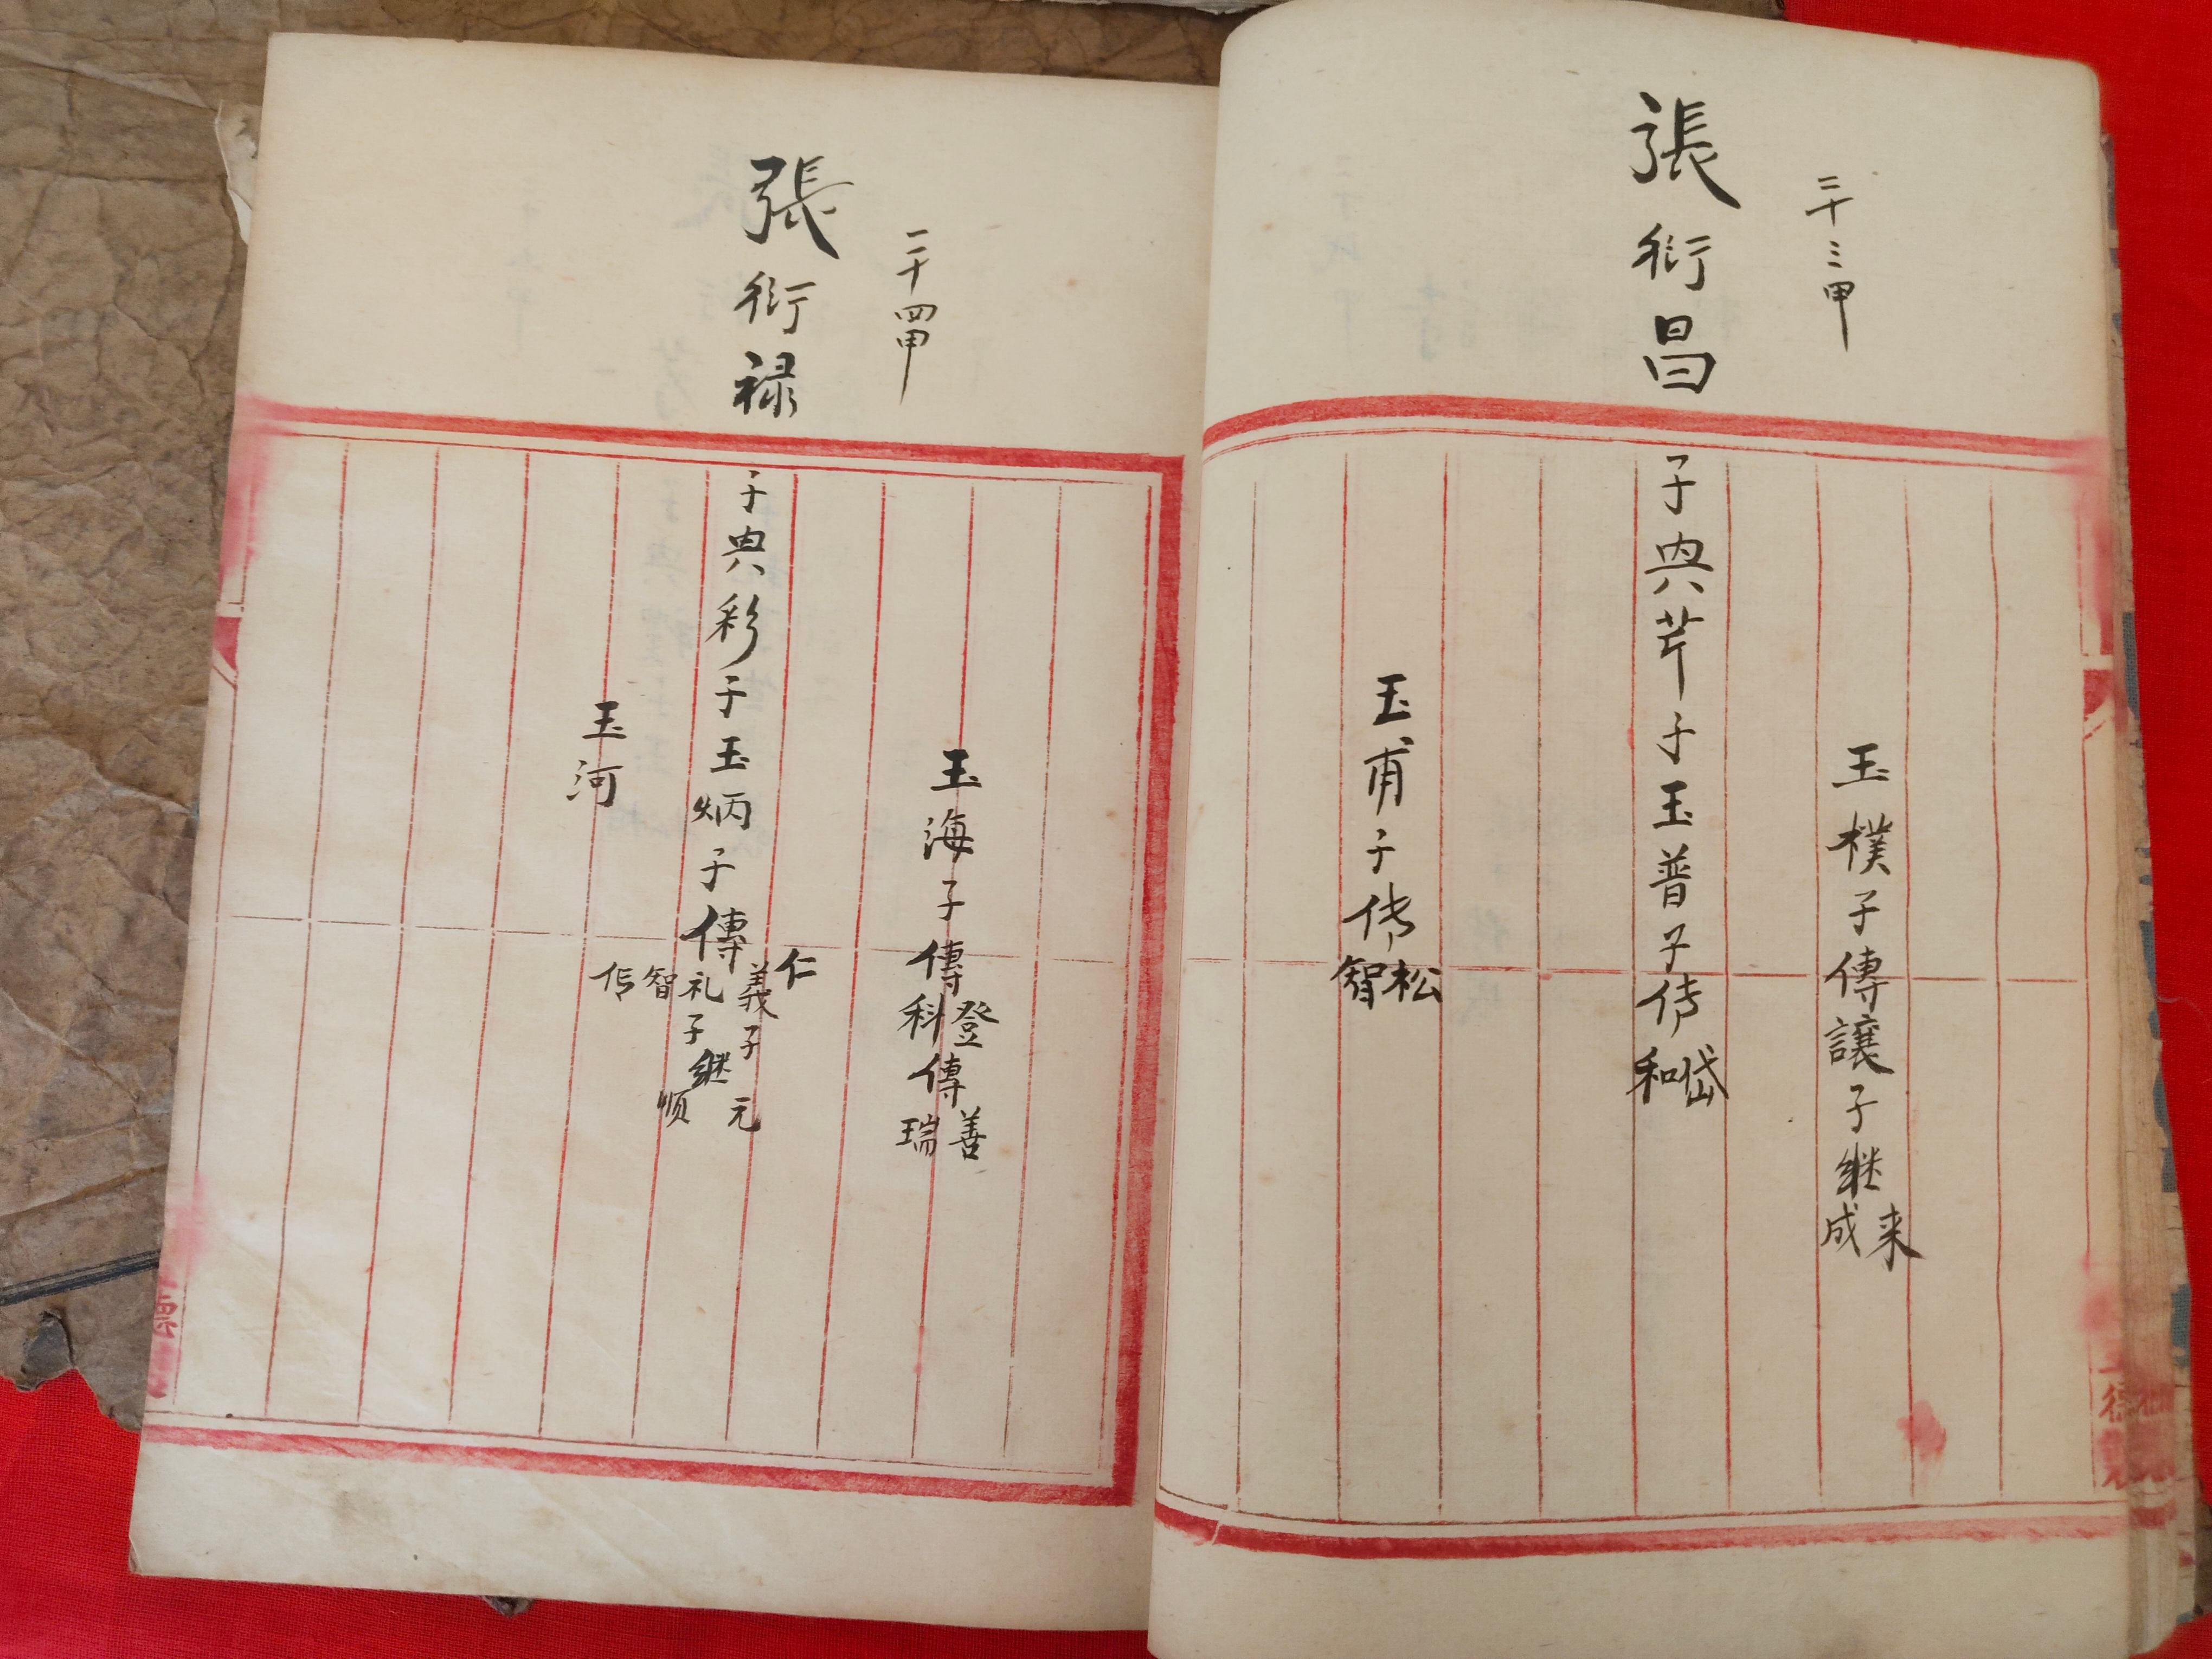 二十三甲
張衍昌
玉樸子傳讓子继来成
子典芹子玉普子传岱和
玉甫子传松智
二十四甲
張衍禄
玉海子傳登科傳善瑞
子典彩子玉炳子傳仁義礼智
子元
子继顺
玉河